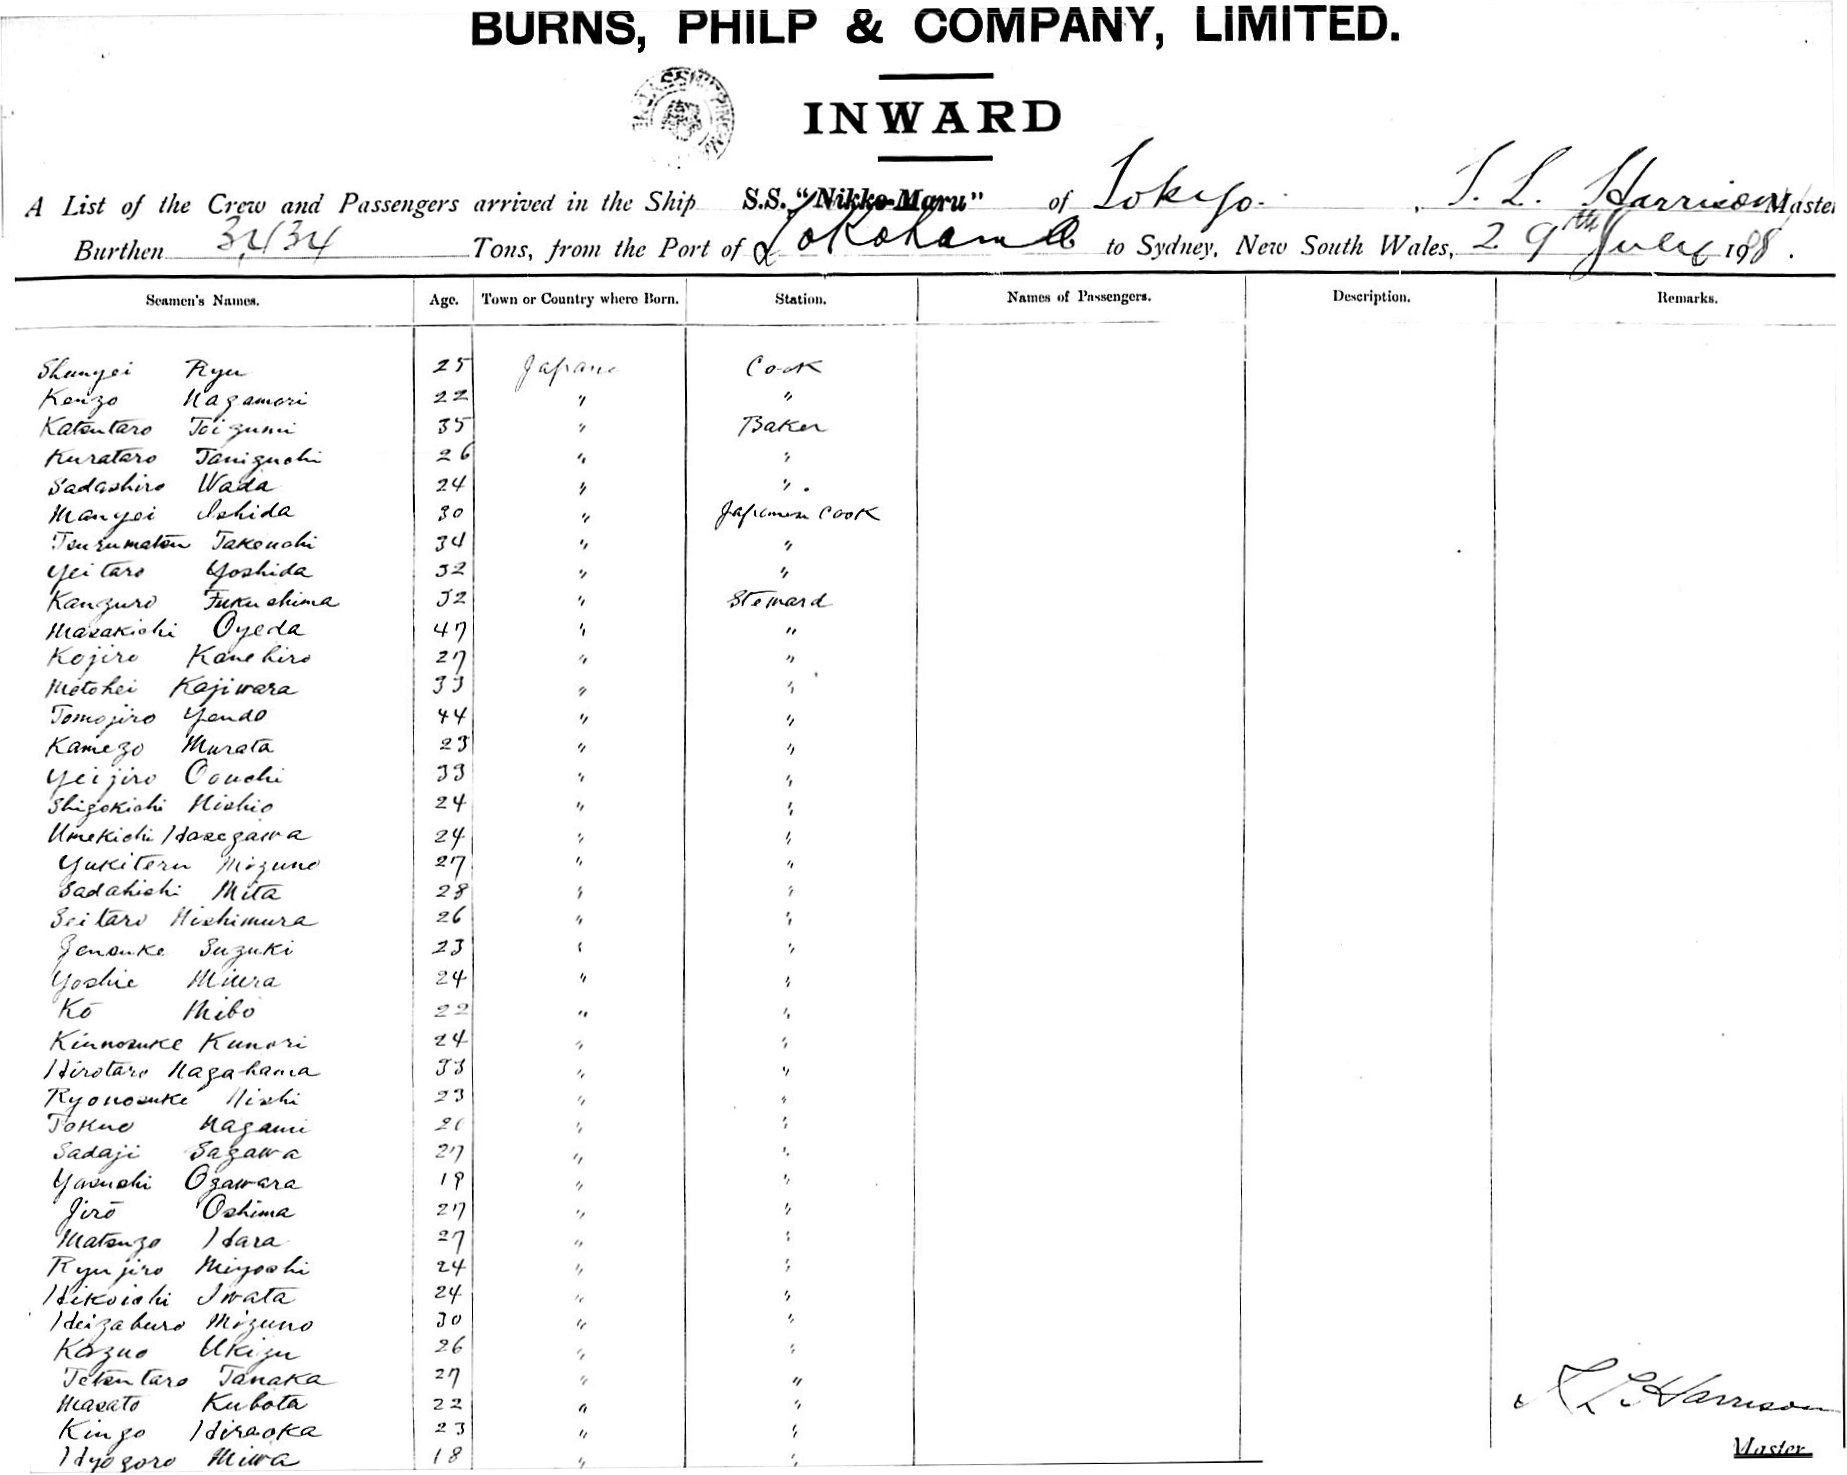 BURNS, PHILP & COMPANY, LIMITED.
INWARD
A List of the Crew and Passengers arrived in the Ship S.S. "Nikko-Maru" of Tokyo. L. Harrison Master
Burthen 3,434 Tons, from the Port of Yokohama to Sydney, New South Wales, 29th July 198.
Seamen's Names. Age. Town or Country where Born. Station. Names of Passengers. Description. Remarks.
Shunyei Ryu 25 Japan Cook
Kenzo Nagamori 22 " "
Katsutaro Toizumi 35 " Baker
Kurataro Taniguchi 26 " "
Sadashiro Wada 24 " "
Manyei Ishida 30 " Japanese Cook
Tsurumatsu Takeuchi 34 " "
Yeitaro Yoshida 32 " "
Kanzuro Fukushima 32 " Steward
Masakichi Oyeda 47 " "
Kojiro Kanehiro 27 " "
Motohei Kajiwara 33 " "
Tomojiro Yendo 44 " "
Kamezo Murata 23 " "
Yeijiro Oouchi 33 " "
Shigekichi Nishio 24 " "
Umekichi Hasegawa 24 " "
Yukiteru Mizuno 27 " "
Sadakichi Mita 28 " "
Seitaro Nishimura 26 " "
Zensuke Suzuki 23 " "
Yoshie Miura 24 " "
Kō Mibo 22 " "
Kinnosuke Kunori 24 " "
Hirotaro Nagahama 33 " "
Ryonosuke Nishi 23 " "
Tokuo Nagami " "
Sadaji Sagawa 27 " "
Yasushi Ogawara 19 " "
Jirō Oshima 27 " "
Matsuzo Hara 27 " "
Ryujiro Miyoshi 24 " "
Hikoichi Iwata 24 " "
Heizaburo Mizuno 30 " "
Kazuo Ukizu 26 " "
Tetsutaro Tanaka 27 " "
Masato Kubota 22 " "
Kingo Hiraoka 23 " "
Hyogoro Miwa 18 " "
L Harrison
Master